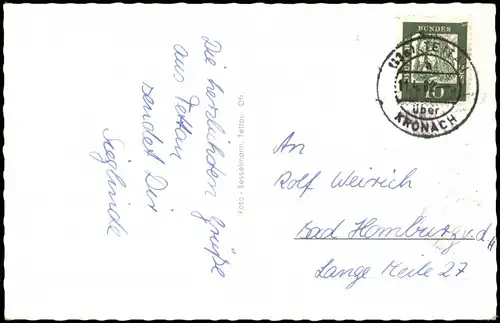 Die herzlichsten Grüße
aus Tettau
sendet Dir
Sieglinde
Foto - Sesselmann, Tettau Ofr.
BUNDES
10
a
über
KRONACH
An
Rolf Weirich
Bad Homburg v.d.H
Lange Meile 27